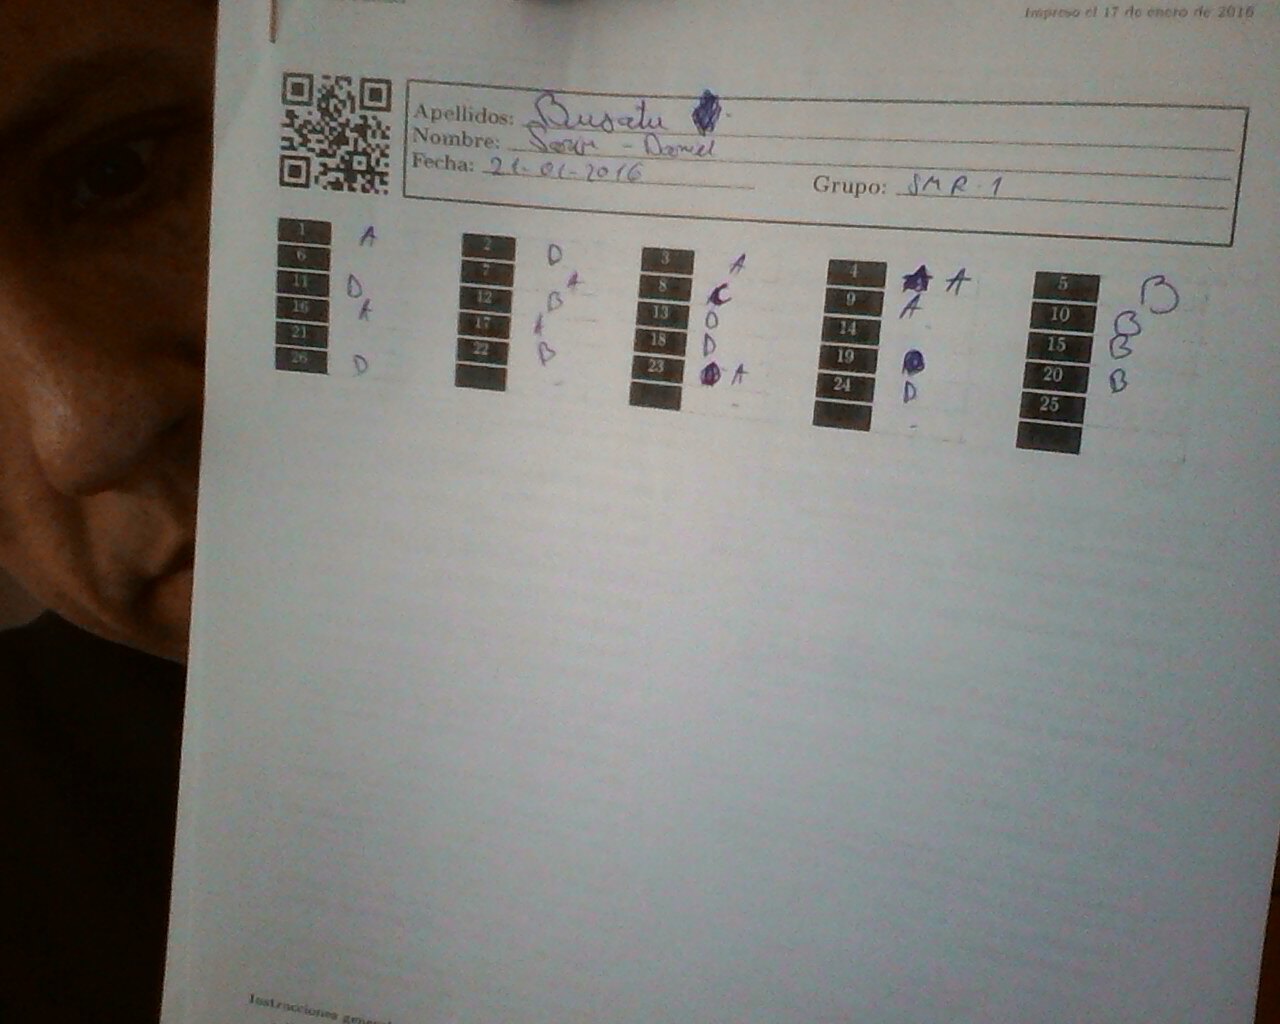 Impreso el 17 de enero de 2016
Apellidos: Busatu
Nombre: - Daniel
Fecha: 21-01-2016 Grupo: SMR-1
1 A 2 D 3 A 4 A 5 B
6 7 A 8 C 9 A 10 B
11 D 12 B 13 D 14 15 B
16 A 17 A 18 D 19 20 B
21 22 B 23 A 24 D 25
26 D
Instrucciones